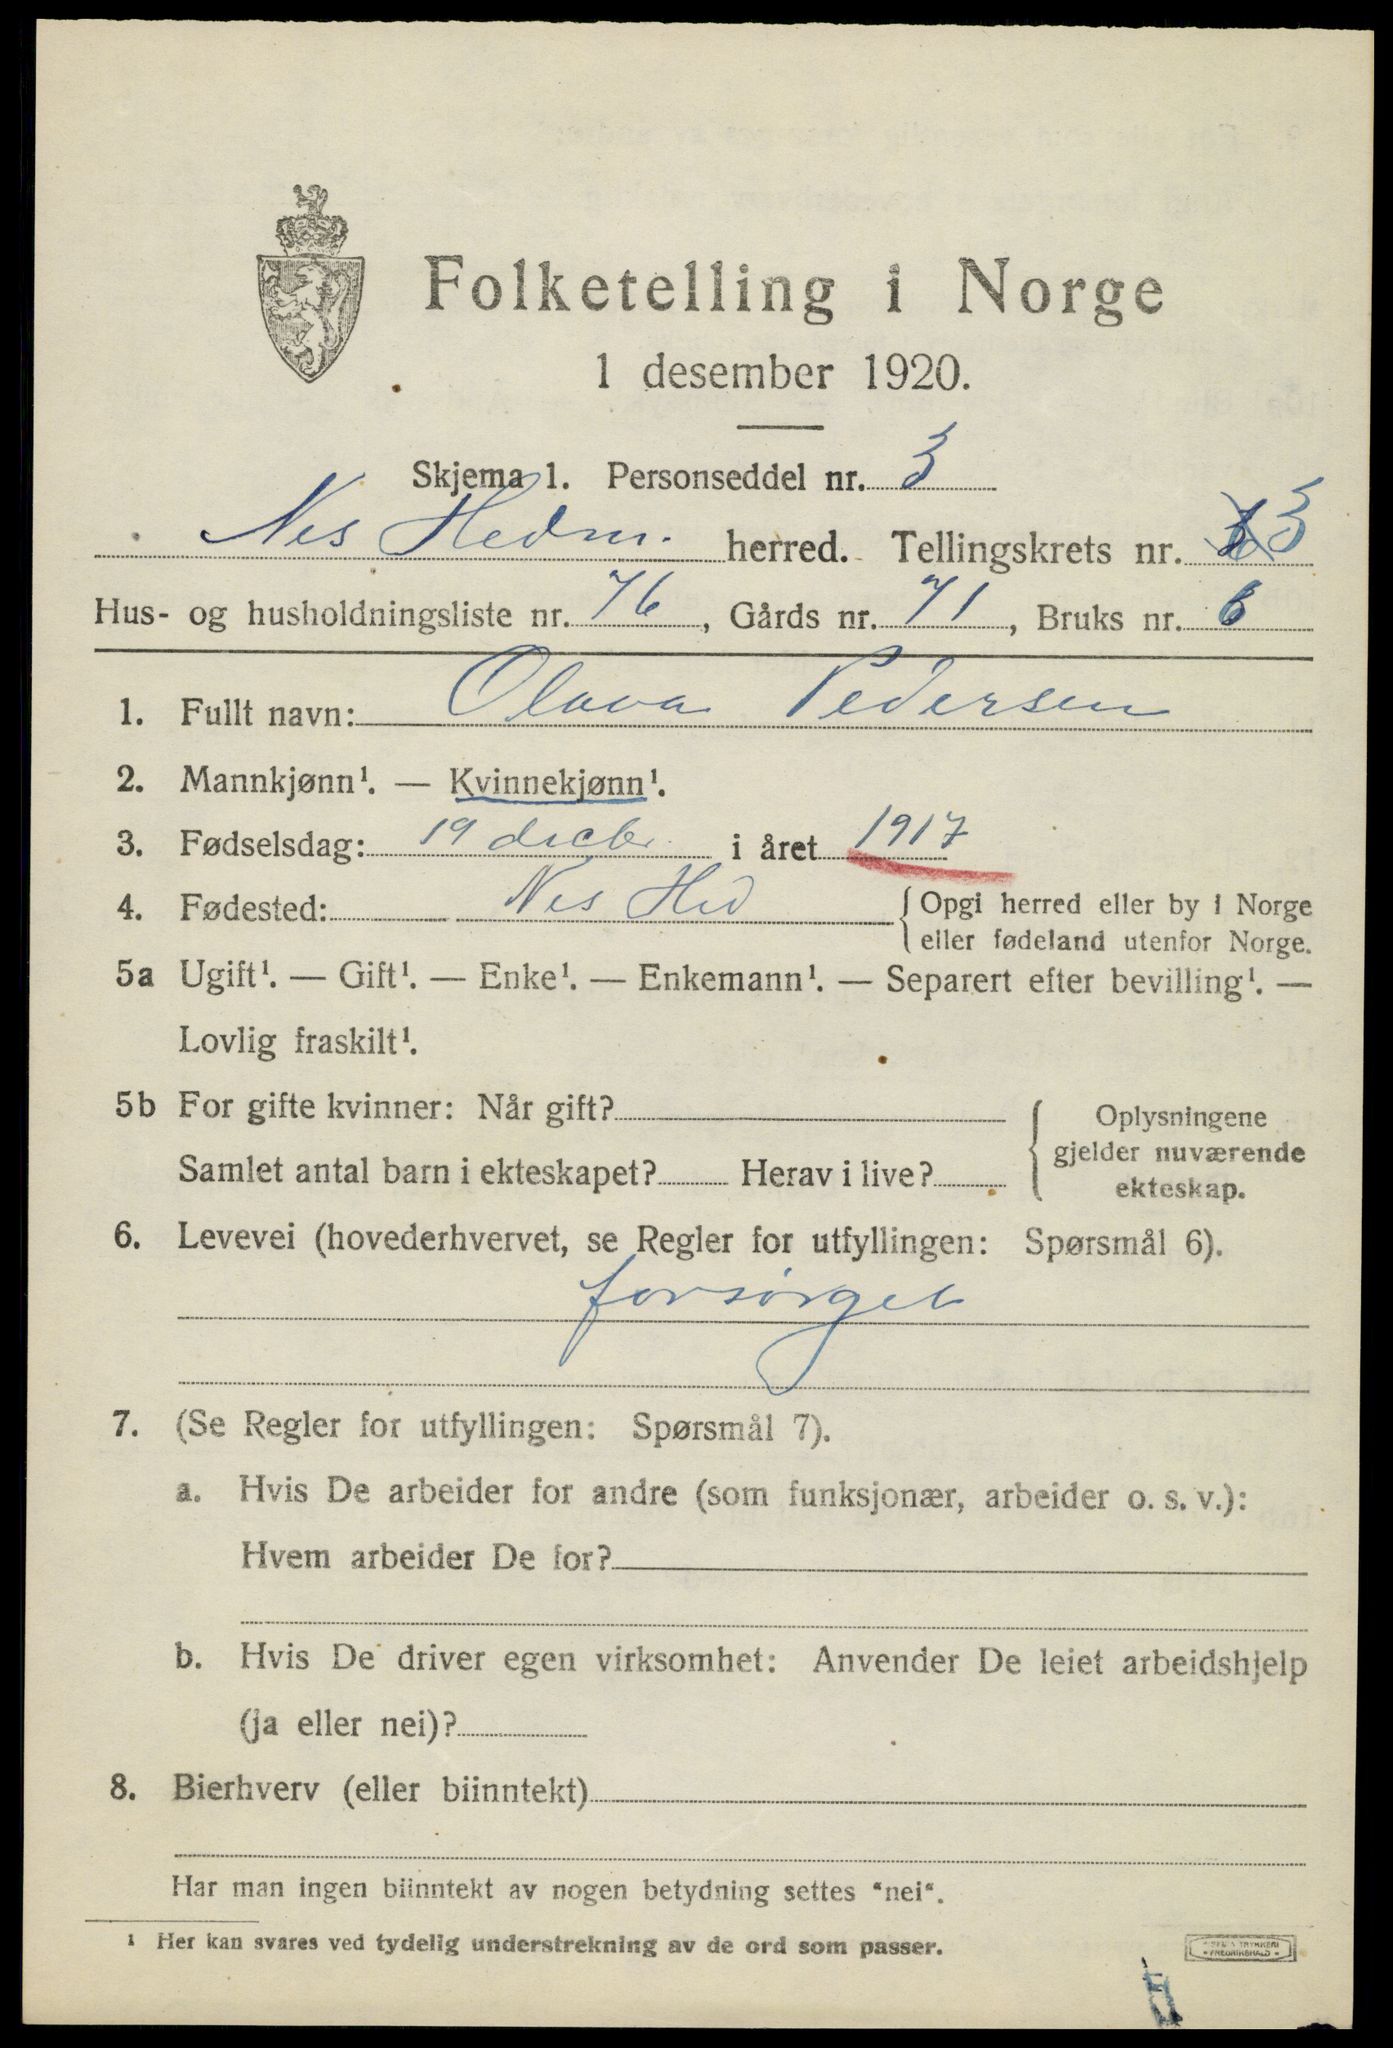 Folketelling i Norge
1 desember 1920.
Skjema 1. Personseddel nr. 3
Nes Hedm. herred. Tellingskrets nr. 3
Hus- og husholdningsliste nr. 76, Gårds nr. 71, Bruks nr. 6
1. Fullt navn: Olava Pedersen
2. Mannkjønn¹. — Kvinnekjønn¹.
3. Fødselsdag: 19 decbr. i året 1917
4. Fødested: Nes Hed { Opgi herred eller by i Norge
eller fødeland utenfor Norge.
5a Ugift¹. — Gift¹. — Enke¹. — Enkemann¹. — Separert efter bevilling¹. —
Lovlig fraskilt¹.
5b For gifte kvinner: Når gift? { Oplysningene
gjelder nuværende
ekteskap.
Samlet antal barn i ekteskapet? Herav i live?
6. Levevei (hovederhvervet, se Regler for utfyllingen: Spørsmål 6).
forsörget
7. (Se Regler for utfyllingen: Spørsmål 7).
a. Hvis De arbeider for andre (som funksjonær, arbeider o. s. v.):
Hvem arbeider De for?
b. Hvis De driver egen virksomhet: Anvender De leiet arbeidshjelp
(ja eller nei)?
8. Bierhverv (eller biinntekt)
Har man ingen biinntekt av nogen betydning settes “nei“.
¹ Her kan svares ved tydelig understrekning av de ord som passer.